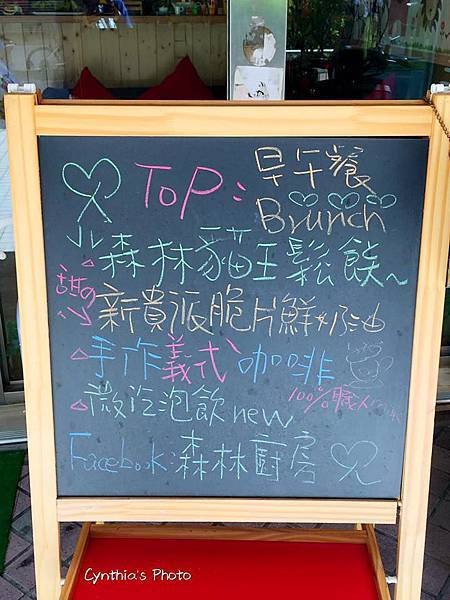 ToP: 早午餐
Brunch
森林貓王鬆餅~
甜心 新貴派脆片鮮奶油
手作義式咖啡
100%職人
微泡泡飲new
Facebook:森林廚房
Cynthia's Photo